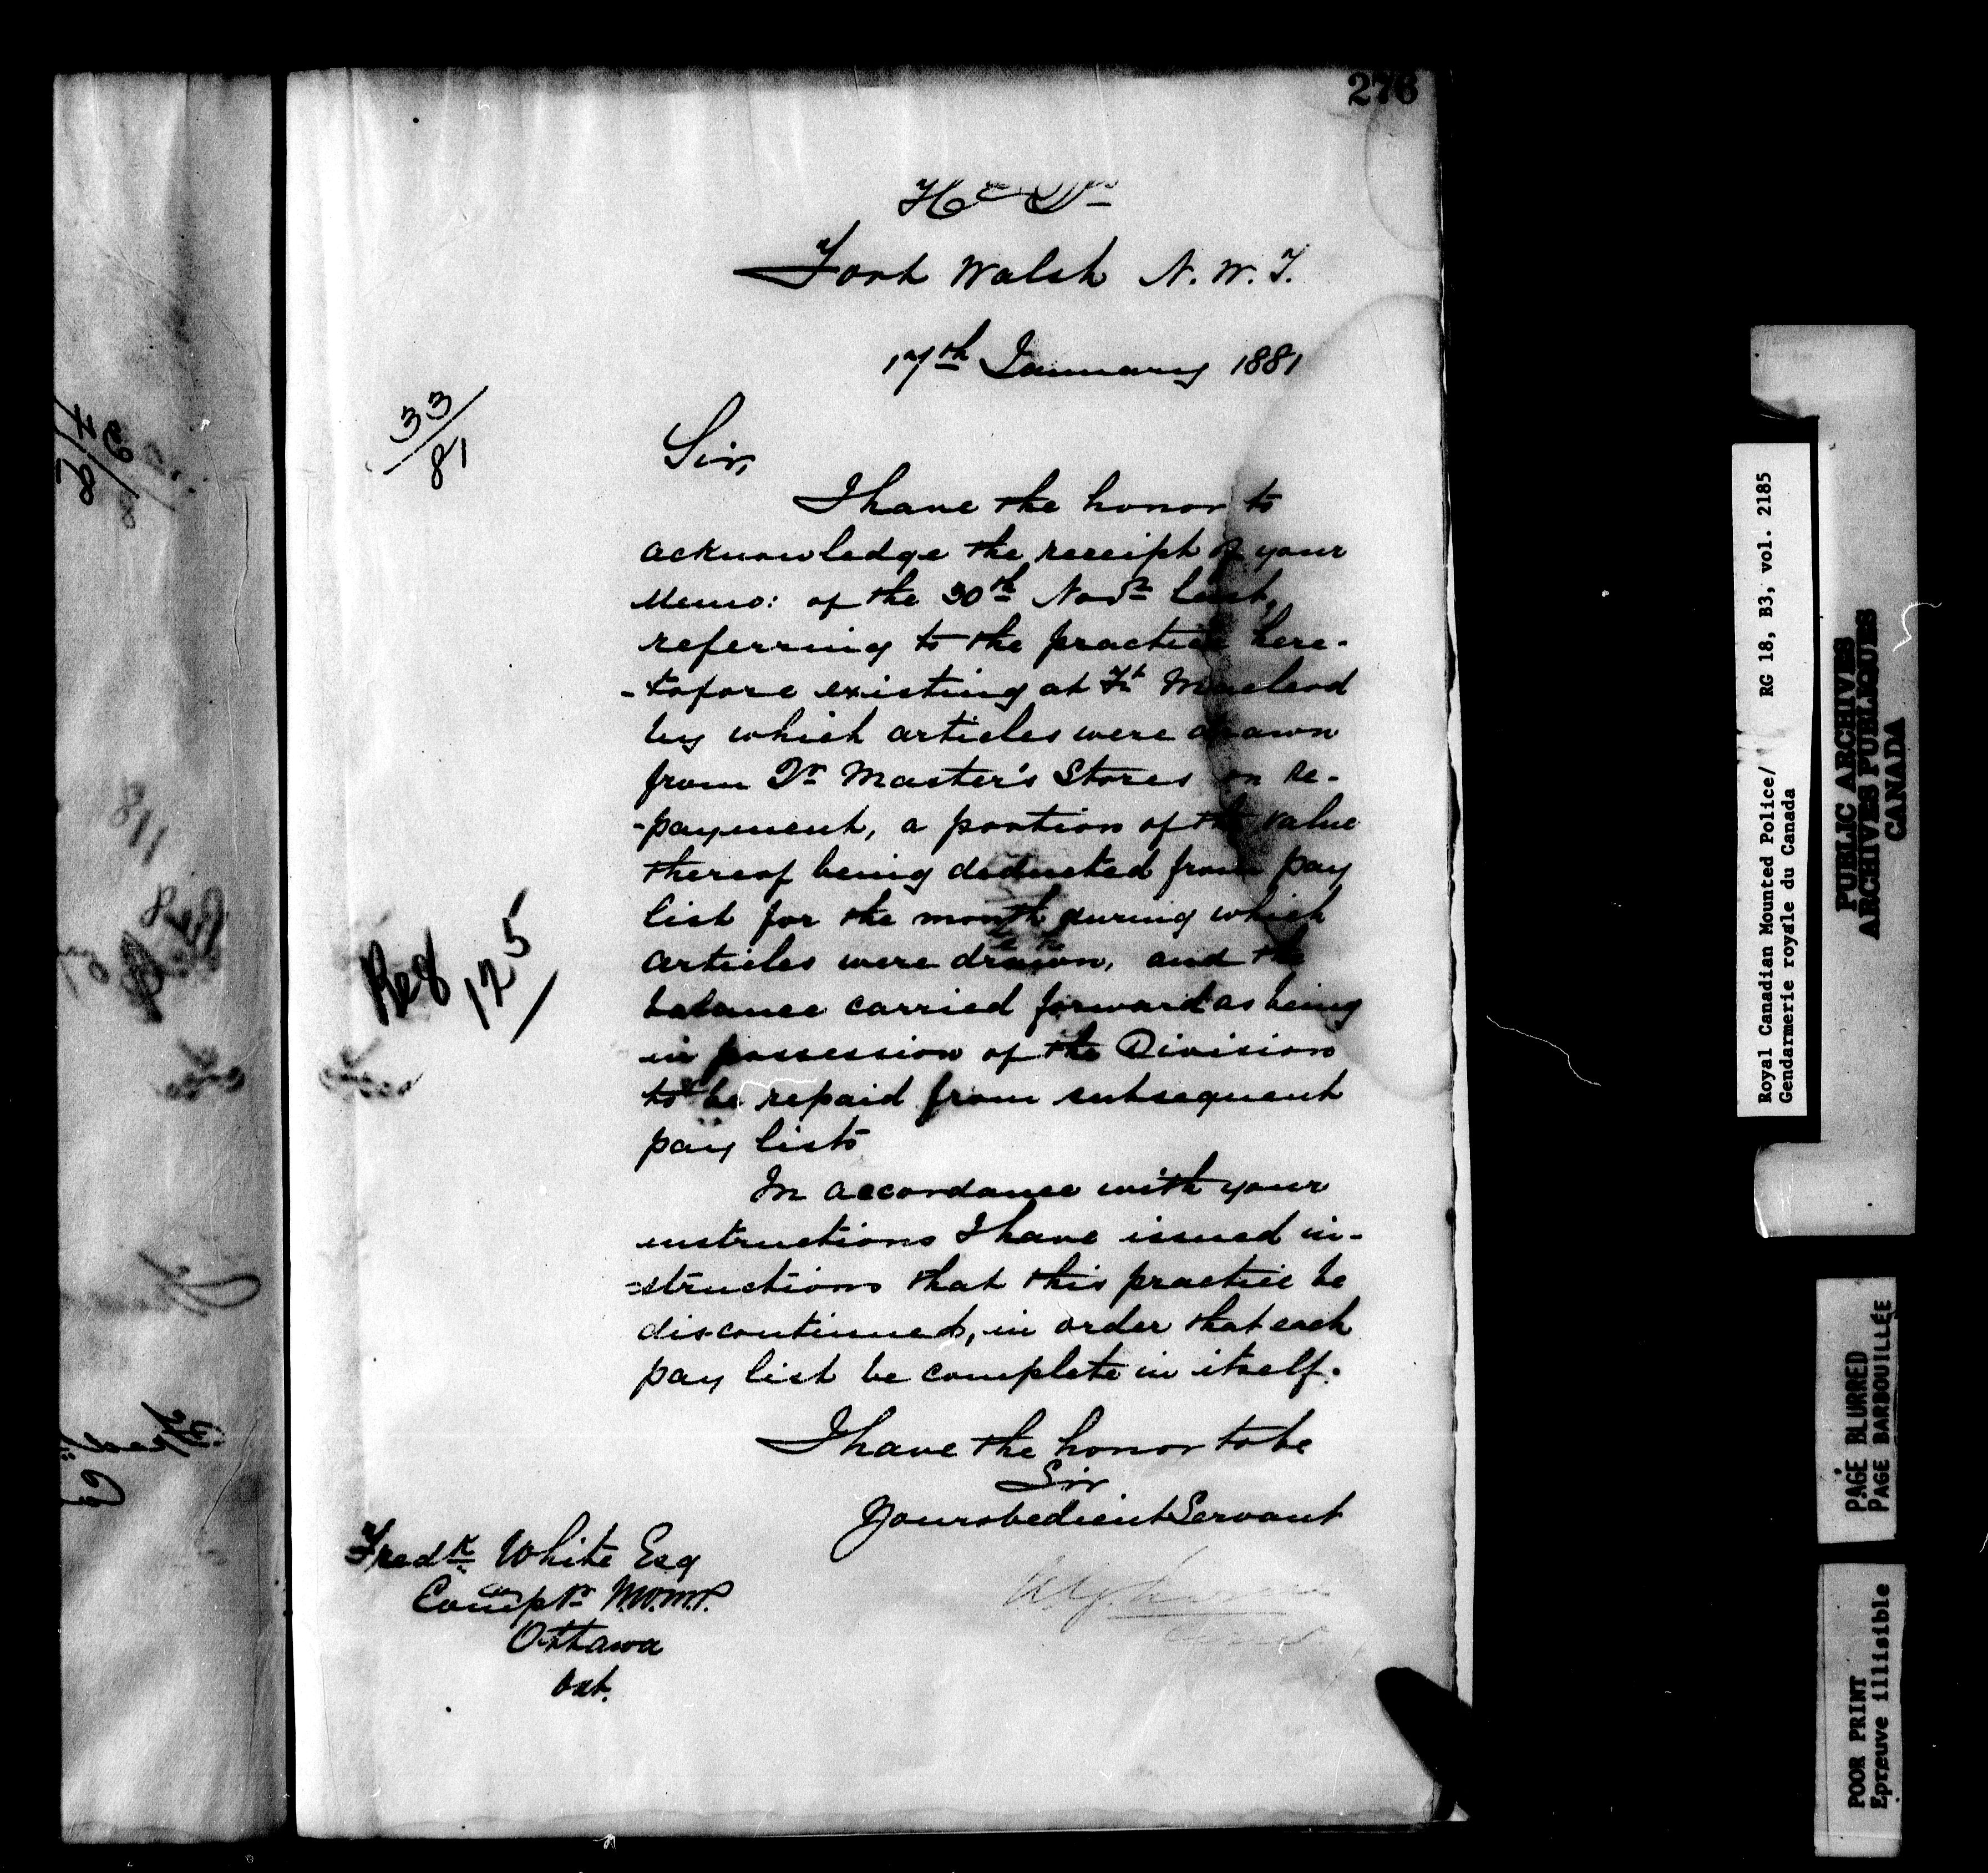 276
Hd Qrs
Fort Walsh N. W. T.
17th January 1881
33/81
Sir,
I have the honor to
acknowledge the receipt of your
Memo: of the 30th Novr last,
referring to the practice here-
-tofore existing at Ft Macleod
by which articles were drawn
from Qr Master's Stores on re-
-payment, a portion of the value
thereof being deducted from pay
list for the month during which
articles were drawn, and the
balance carried forward as being
in possession of the Division
to be repaid from subsequent
pay lists
In accordance with your
instructions I have issued in-
=structions that this practice be
discontinued, in order that each
pay list be complete in itself.
I have the honor to be
Sir
Your obedient Servant
Fredk White Esq
Comptr N.W.M.P.
Ottawa
Ont.
125
Royal Canadian Mounted Police/ RG 18, B3, vol. 2185
Gendarmerie royale du Canada
PUBLIC ARCHIVES
ARCHIVES PUBLIQUES
CANADA
PAGE BLURRED
PAGE BARBOUILLÉE
POOR PRINT
Epreuve illisible